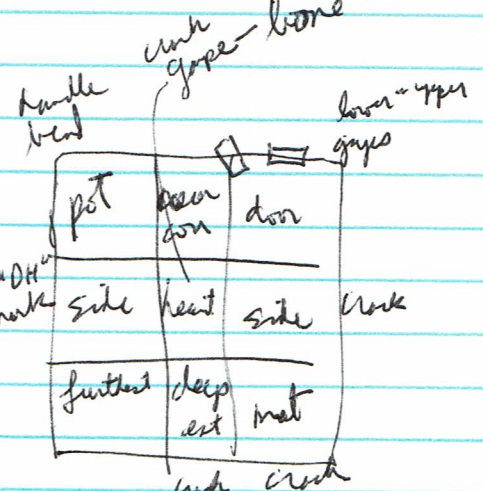 gape - bone
handle
bend
lower - upper
gapes
pot
door
"DH"
side heart side crack
furthest deep
est mat
crack